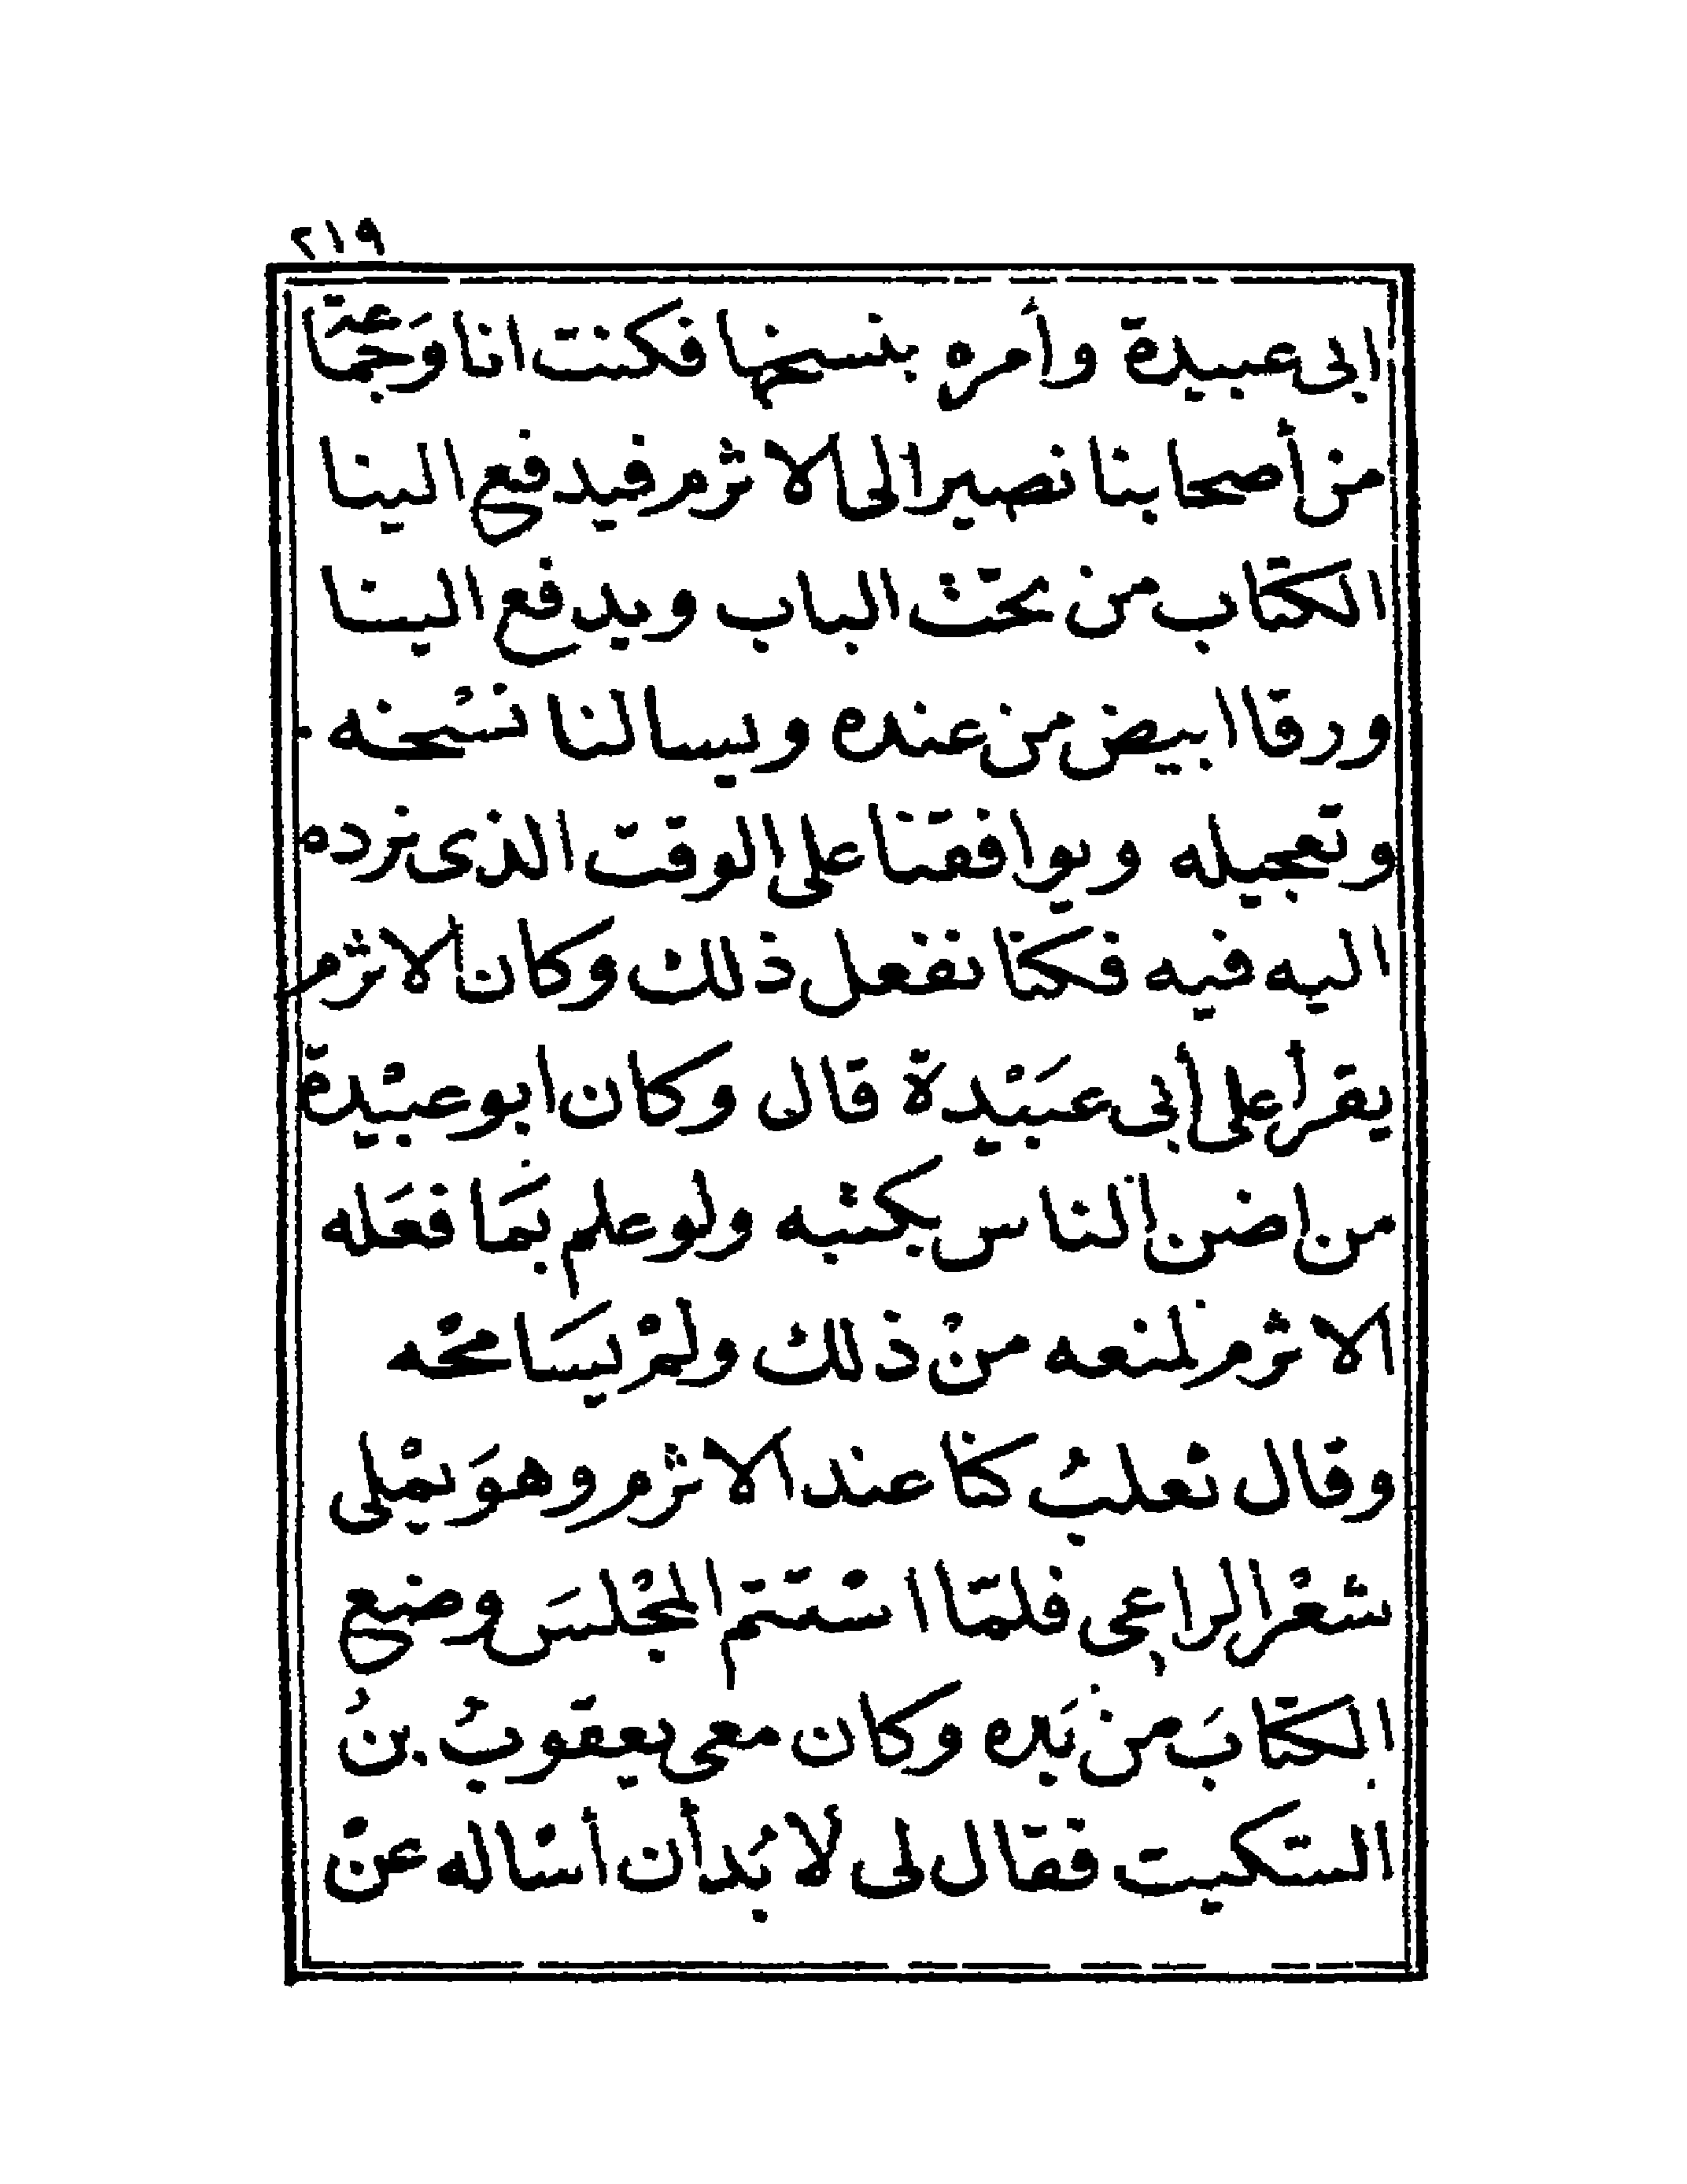 ٢١٩
ابى عبيدة وأمره بنسخها فكنت انا وَجماعة
من أصحابنا نصير الى الاثرم فيدفع الينا
الكتاب من تحت الباب ويدفع الينا
ورقا ابيض من عنده ويسالنا نسْخه
وتعجيله ويوافقنا على الوقت الذى نرده
اليه فيه فكنا نفعل ذلك وكان الاثرم
يقرأ على أبى عبَيْدة قال وكان ابو عبيْدة
من اضن الناس بكتبه ولو علم بمَا فعَله
الاثرم لمنعه من ذلك ولمْ يسَامحْه
وقال ثعلبُ كنا عند الاثرم وهوَ يمْلى
شعْر الراعى فلمّا اسْتتم المجْلسَ وضع
الكتابَ من يَده وكان معى يعقوبُ بنُ
السّكيت فقال لى لا بُد أن أسْاله عنْ